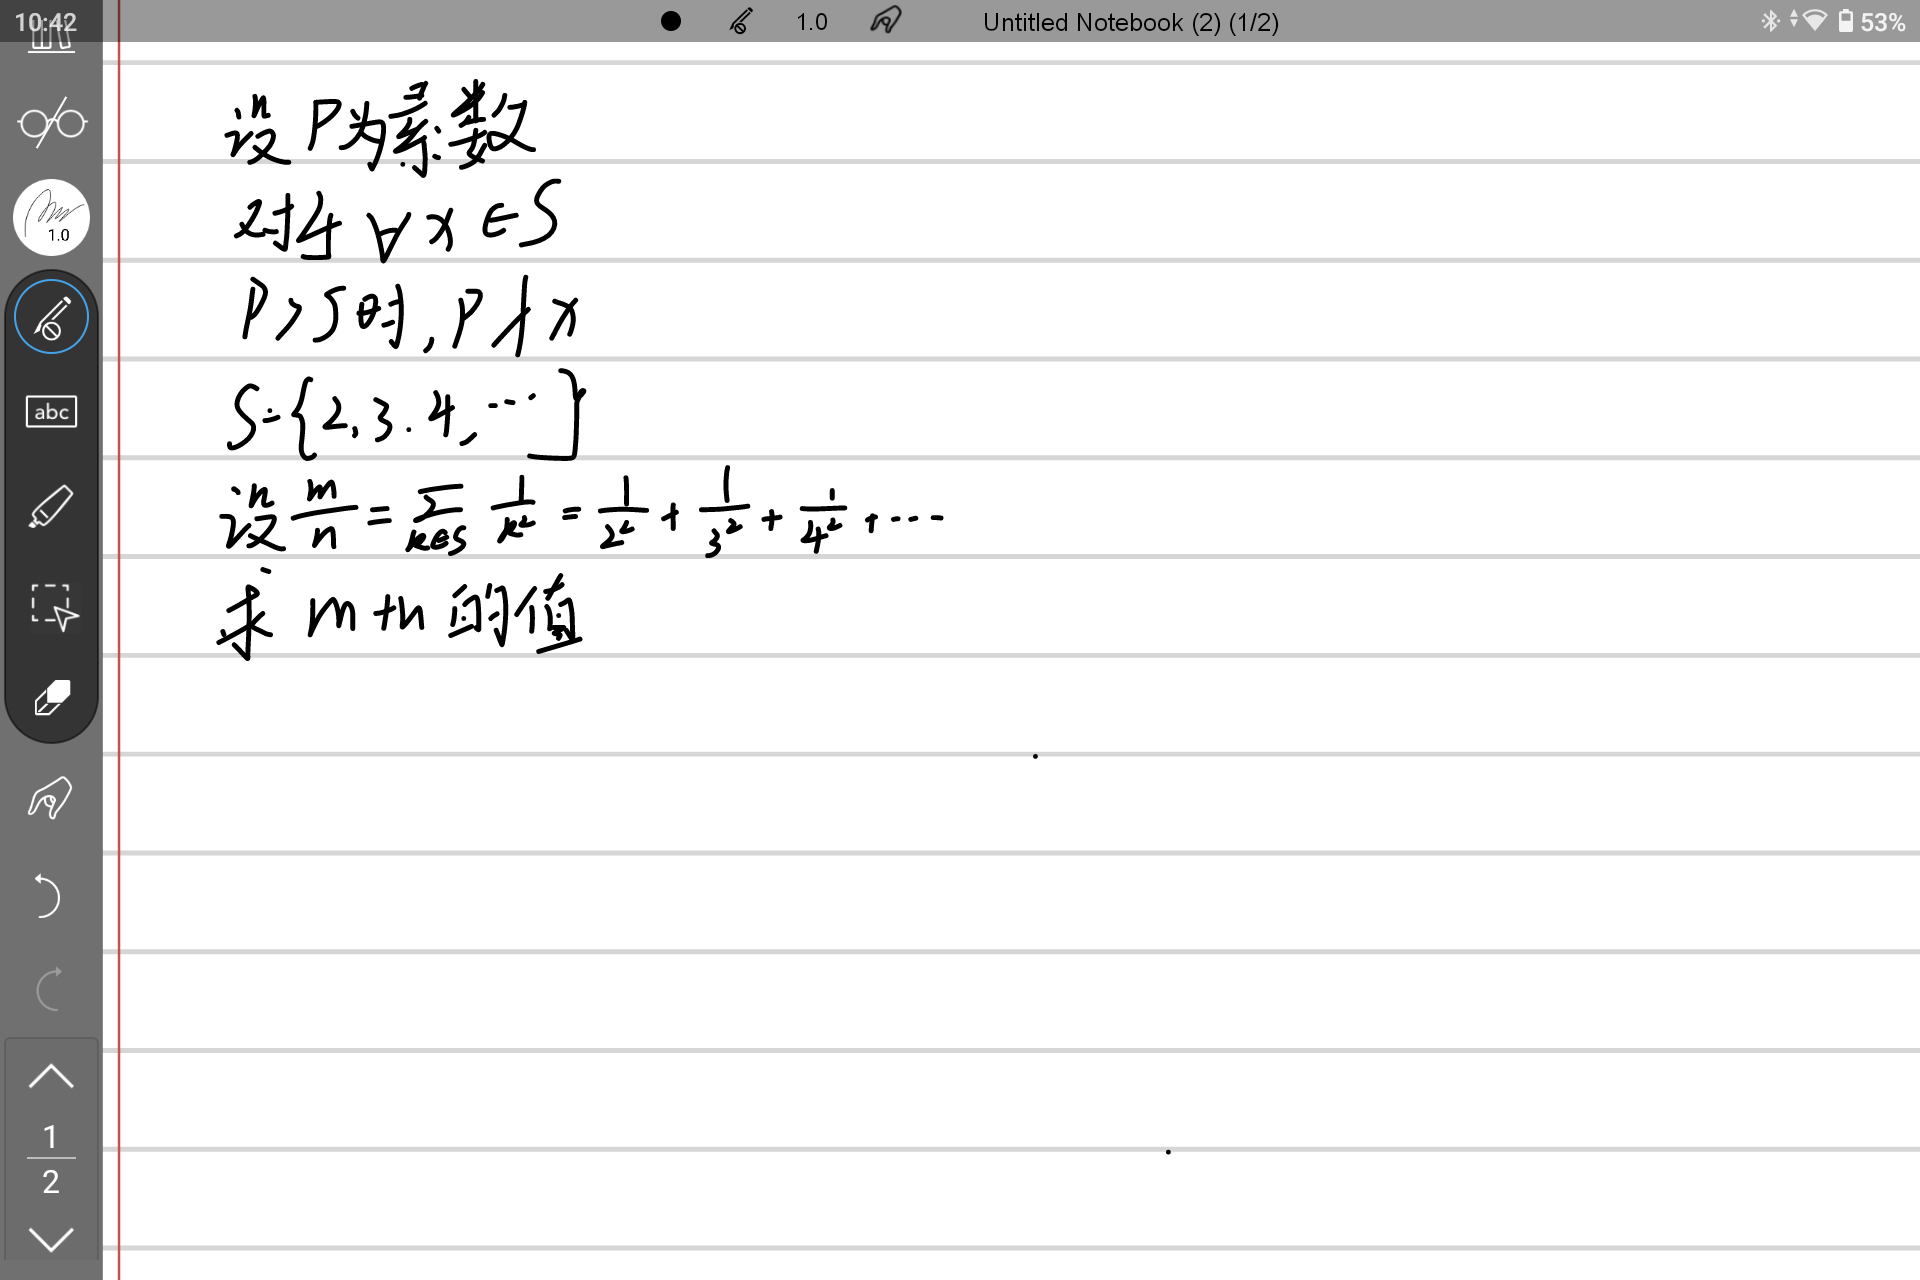 10:42 1.0 Untitled Notebook (2) (1/2) 53%
1.0
abc
1
2
设 P为素数
对于 ∀ x ∈ S
P > 5 时, P ∤ x
S = {2, 3. 4, ...}
设 m/n = Σ_{k∈S} 1/k² = 1/2² + 1/3² + 1/4² + ...
求 m+n 的值